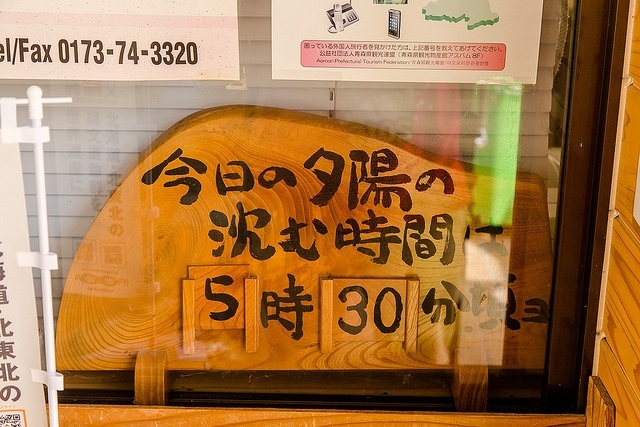 el/Fax 0173-74-3320
困っている外国人旅行者を見かけた方は、上記番号を教えてあげてください。
公益社団法人青森県観光連盟（青森県観光物産館アスパム8F）
Aomori Prefectural Tourism Federation
今日の夕陽の
沈む時間は
5時30分頃ヨ
北海道・北東北の